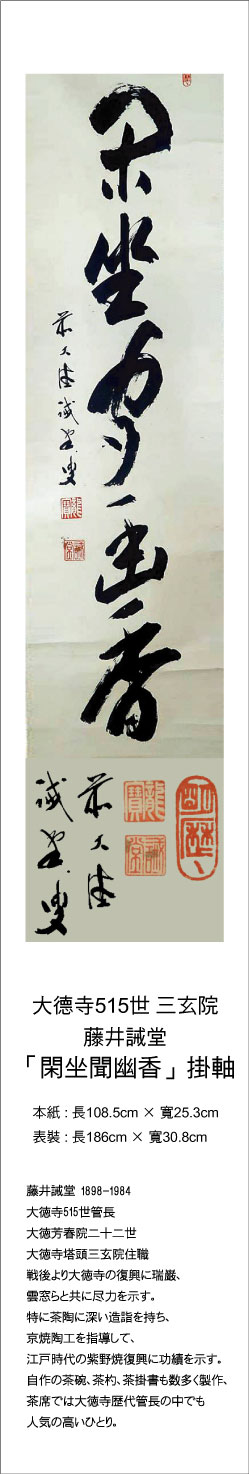 閑坐聞幽香
前大德誡堂叟
前大德
誡堂叟
大德寺515世 三玄院
藤井誡堂
「閑坐聞幽香」掛軸
本紙 : 長108.5cm × 寬25.3cm
表裝 : 長186cm × 寬30.8cm
藤井誡堂 1898-1984
大徳寺515世管長
大徳芳春院二十二世
大徳寺塔頭三玄院住職
戦後より大徳寺の復興に瑞巖、
雲窓らと共に尽力を示す。
特に茶陶に深い造詣を持ち、
京焼陶工を指導して、
江戸時代の紫野焼復興に功績を示す。
自作の茶碗、茶杓、茶掛書も数多く製作、
茶席では大徳寺歴代管長の中でも
人気の高いひとり。